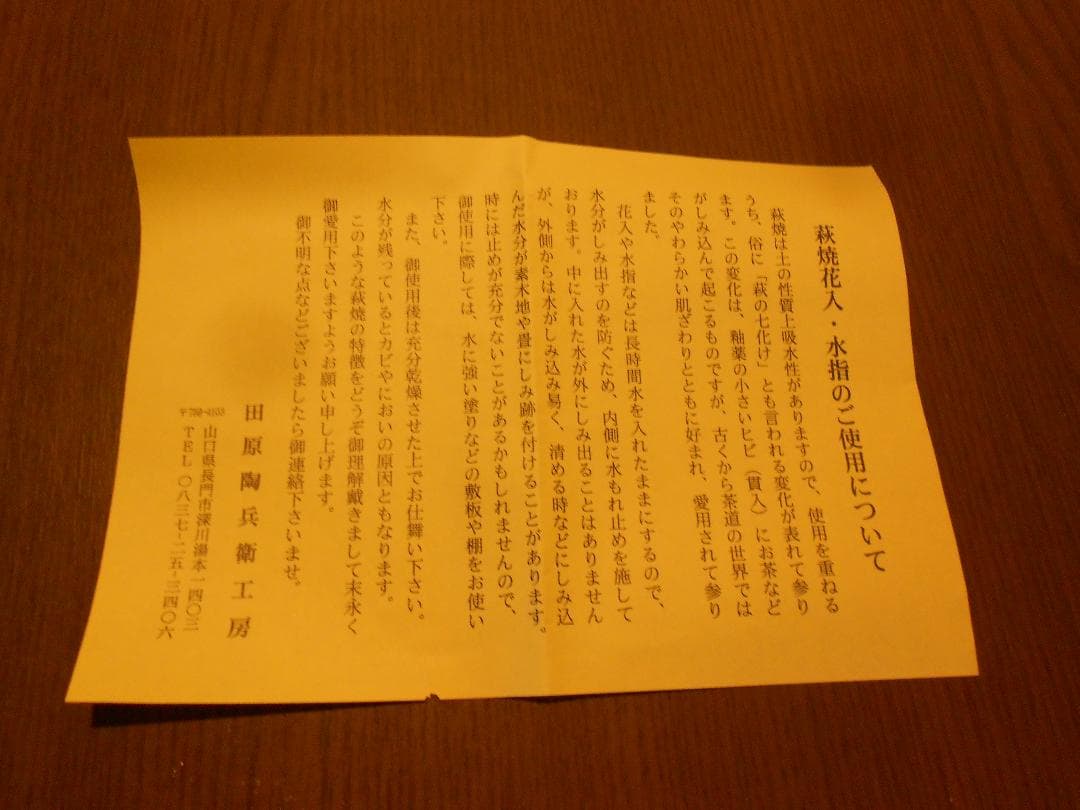 萩焼花入・水指のご使用について
萩焼は土の性質上吸水性がありますので、使用を重ねる
うち、俗に「萩の七化け」とも言われる変化が表れて参り
ます。この変化は、釉薬の小さいヒビ（貫入）にお茶など
がしみ込んで起こるものですが、古くから茶道の世界では
そのやわらかい肌ざわりとともに好まれ、愛用されて参り
ました。
花入や水指などは長時間水を入れたままにするので、
水分がしみ出すのを防ぐため、内側に水もれ止めを施して
おります。中に入れた水が外にしみ出ることはありません
が、外側からは水がしみ込み易く、清める時などにしみ込
んだ水分が素木地や畳にしみ跡を付けることがあります。
時には止めが充分でないことがあるかもしれませんので、
御使用に際しては、水に強い塗りなどの敷板や棚をお使い
下さい。
また、御使用後は充分乾燥させた上でお仕舞い下さい。
水分が残っているとカビやにおいの原因ともなります。
このような萩焼の特徴をどうぞ御理解戴きまして末永く
御愛用下さいますようお願い申し上げます。
御不明な点などございましたら御連絡下さいませ。
田原陶兵衛工房
山口県長門市深川湯本一四〇三
TEL〇八三七-二五-三四〇六